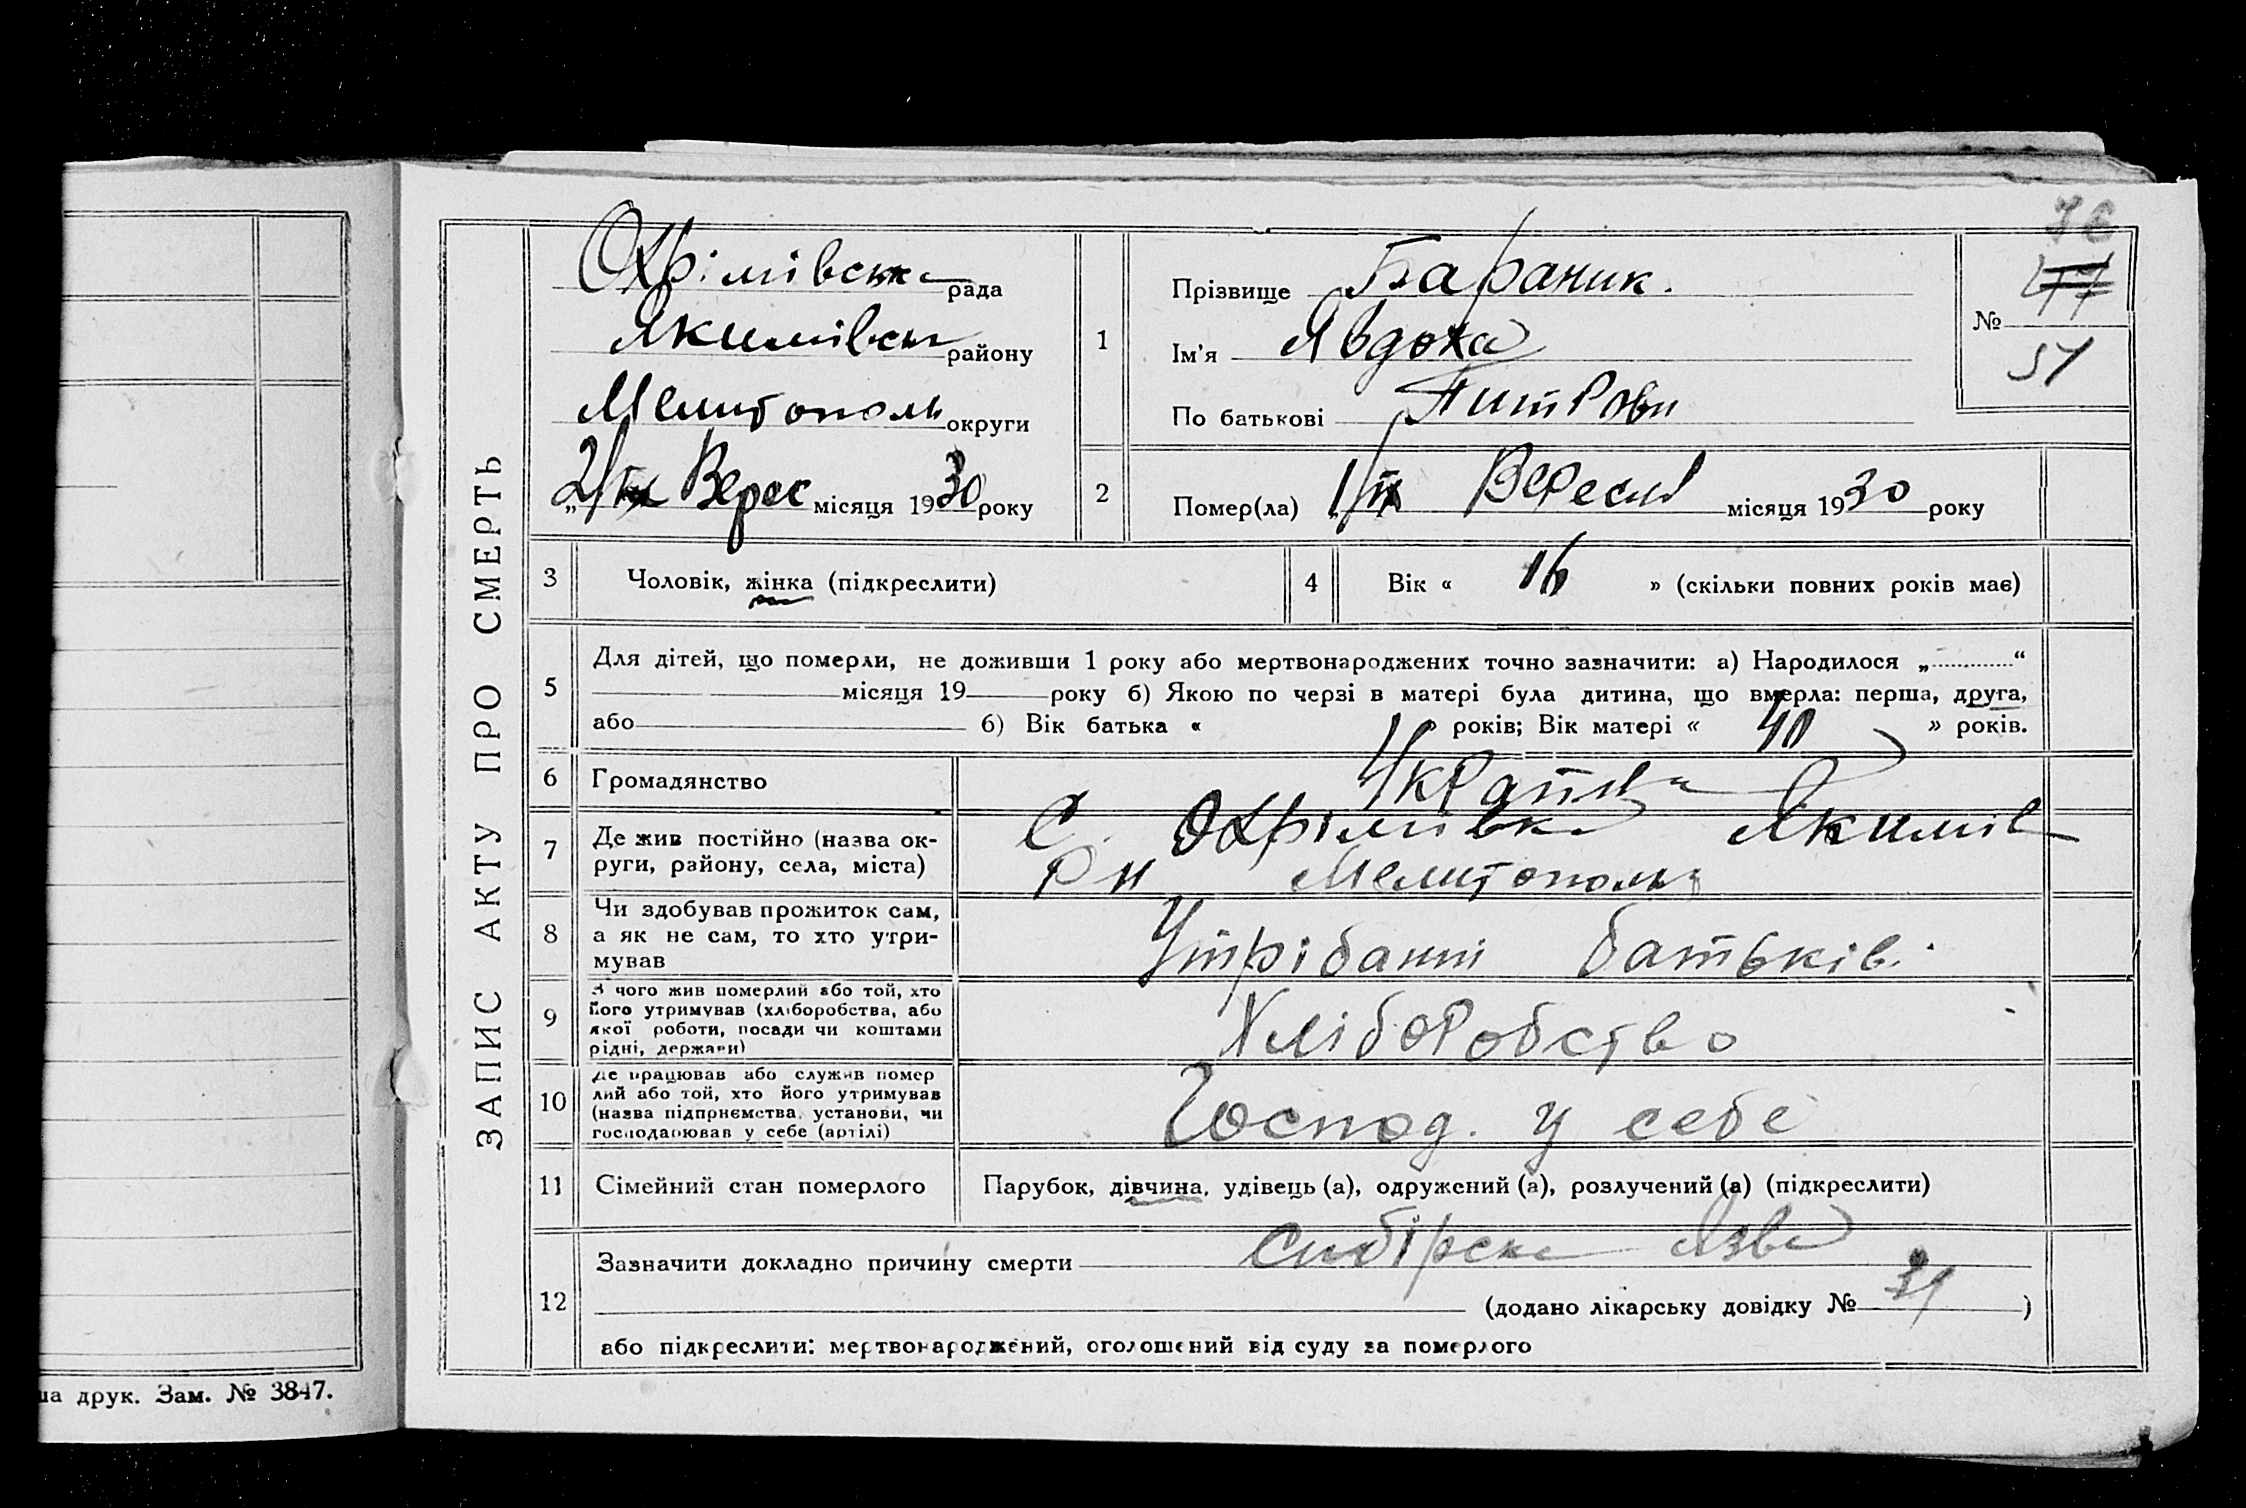 ЗАПИС АКТУ ПРО СМЕРТЬ
Охрімівська рада
Якимівськ району
Мелитополь округи
„2/іх Верес місяця 1930 року
1
Прізвище Бараник.
Ім'я Явдоха
По батькові Питрови
76
47
№
51
2
Помер(ла) „1/іх Вересня місяця 1930 року
3
Чоловік, жінка (підкреслити)
4
Вік « 16 » (скільки повних років має)
5
Для дітей, що померли, не доживши 1 року або мертвонароджених точно зазначити: а) Народилося „ “
місяця 19 року б) Якою по черзі в матері була дитина, що вмерла: перша, друга,
або б) Вік батька « років; Вік матері « 40 » років.
6
Громадянство
Україн
7
Де жив постійно (назва ок-
руги, району, села, міста)
С. Охрімівка Якимів
Рн Мелитополь
8
Чи здобував прожиток сам,
а як не сам, то хто утри-
мував
Утрібанні батьків.
9
З чого жив померлий або той, хто
його утримував (хліборобства, або
якої роботи, посади чи коштами
рідні, держави)
Хліборобство
10
Де працював або служив помер
лий або той, хто його утримував
(назва підприємства, установи, чи
господарював у себе (артілі)
Господ. у себе
11
Сімейний стан померлого
Парубок, дівчина, удівець (а), одружений (а), розлучений (а) (підкреслити)
12
Зазначити докладно причину смерти Сибірска Язва
(додано лікарську довідку № 31 )
або підкреслити: мертвонароджений, оголошений від суду за померлого
ша друк. Зам. № 3847.